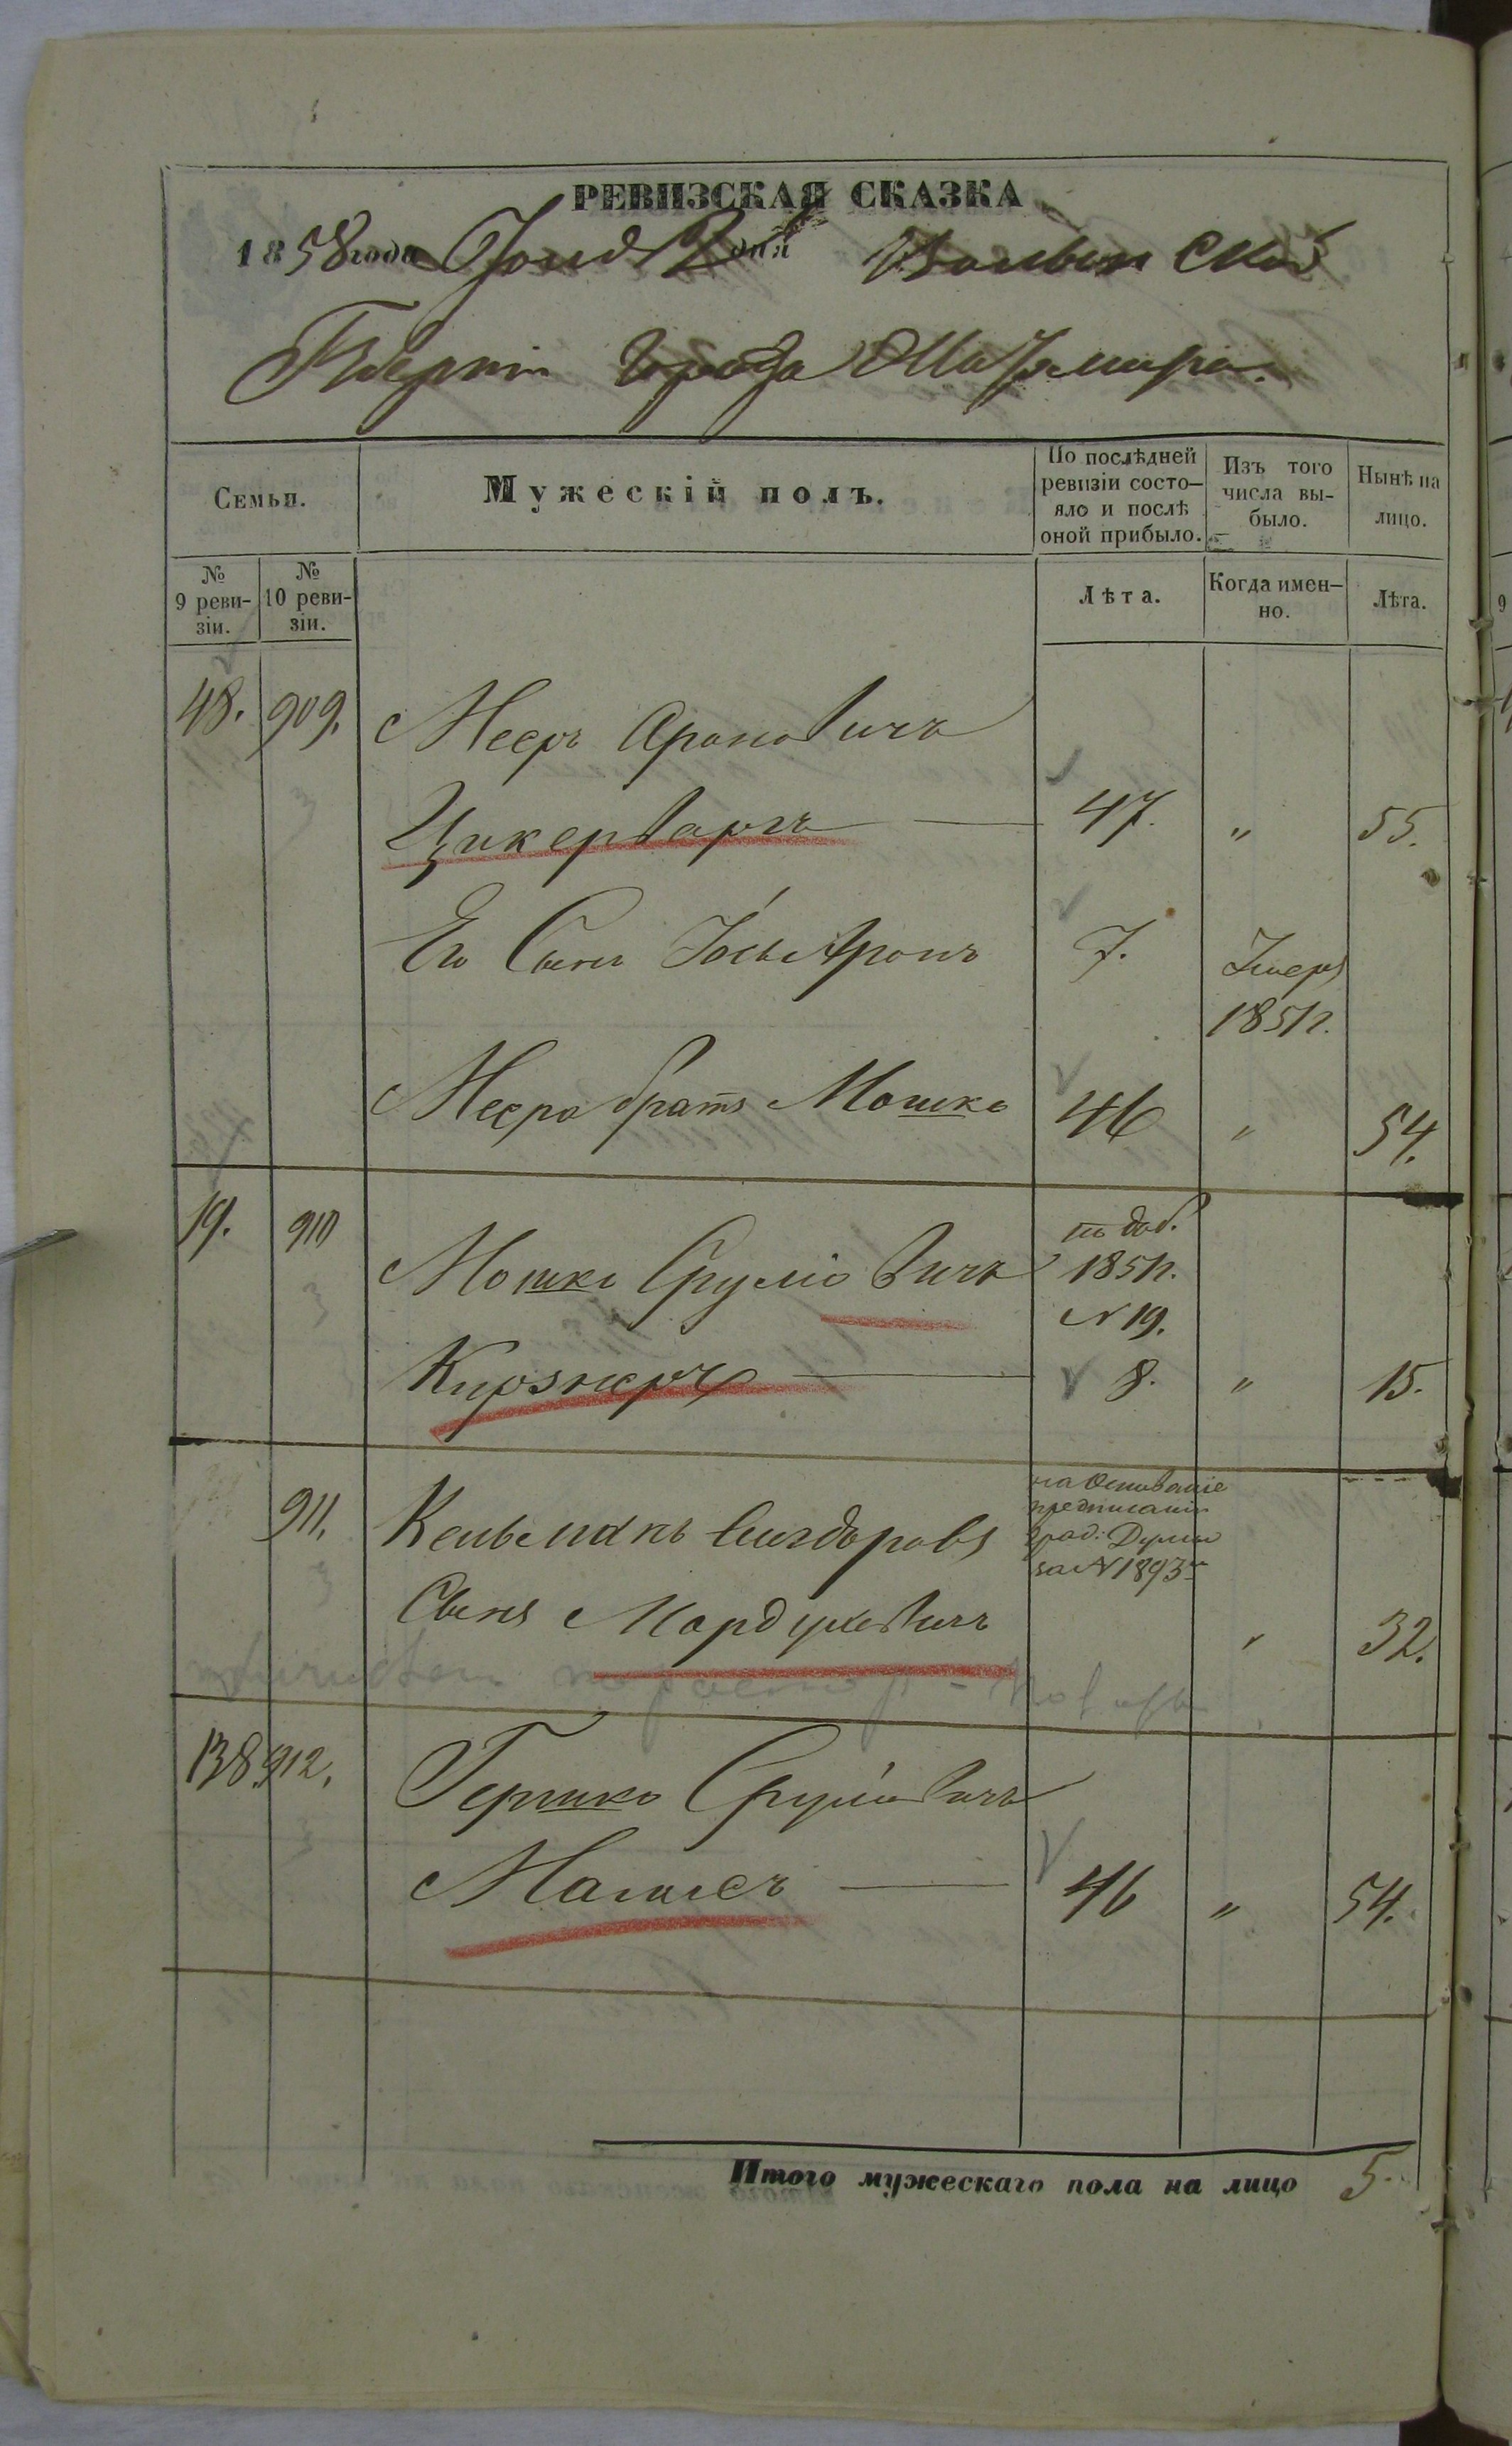 РЕВИЗСКАЯ СКАЗКА
1858 года Іюня 2 дня Волынской
Губерніи города Житомира.
Семьи.
Мужескій полъ.
По послѣдней ревизіи состо-
яло и послѣ
оной прибыло.
Изъ того
числа вы-
было.
Нынѣ на
лицо.
№
9 реви-
зіи.
№
10 реви-
зіи.
Лѣта.
Когда имен-
но.
Лѣта.
48. 909. Мееръ Ароновичъ
Цукерваргъ 47. " 55.
Его Сынъ Аронъ 7. Умеръ
1851г.
Меера братъ Мошко 46 " 54.
19. 910 Мошко Срулiовичъ по доб.
1851г.
№ 19.
8. " 15.
911. Кельманъ
на основаніе
предписанія
Думы
за № 1893
Сынъ Мордуховичъ " 32.
138. 912. Гершко Сруліовичъ
46 " 54.
Итого мужескаго пола на лицо 5.